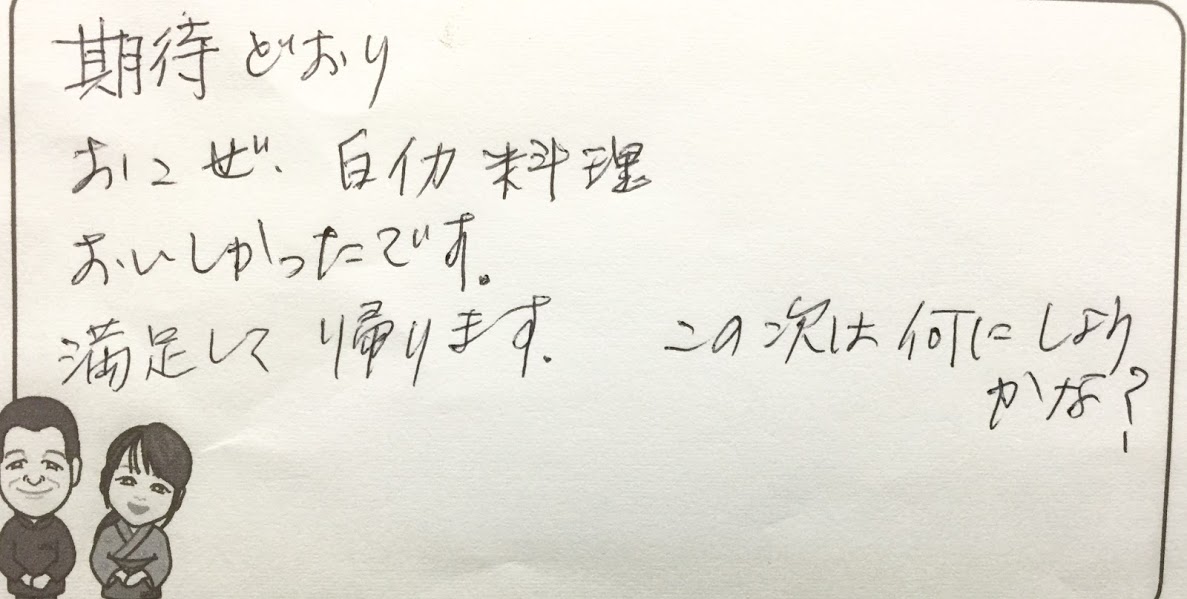 期待どおり
おこぜ、白イカ料理
おいしかったです。
満足して帰ります。
この次は何にしよう
かな?